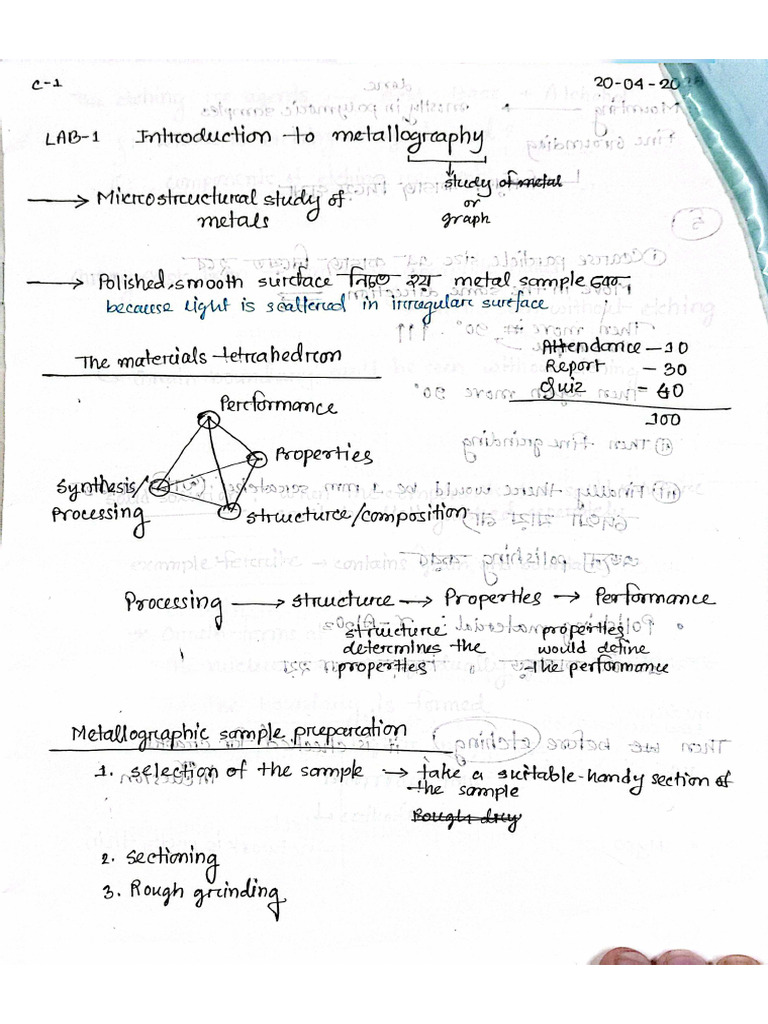 C-1
20-04-20
LAB-1 Introduction to metallography
study of metal
or
graph
→ Microstructural study of
metals
→ Polished, smooth surface নিতে হয় metal sample এর,
because light is scattered in irregular surface
Attendance — 10
Report — 30
Quiz = 60
100
The materials tetrahedron
Performance
Properties
Synthesis/
Processing
structure/composition
Processing → structure → Properties → Performance
structure
determines the
properties
properties
would define
the performance
Metallographic sample preparation
1. selection of the sample → take a suitable-handy section of
the sample
Rough dry
2. sectioning
3. Rough grinding